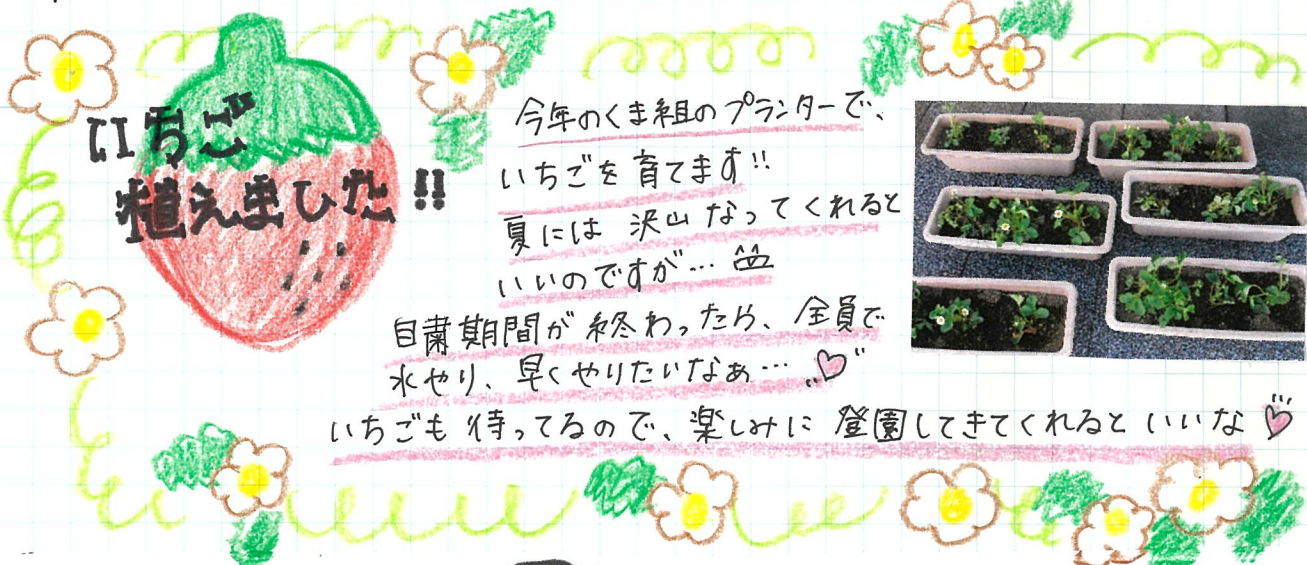 いちご
植えました!!
今年のくま組のプランターで、
いちごを育てます!!
夏には 沢山 なってくれると
いいのですが…
自粛期間が 終わったら、全員で
水やり、早くやりたいなぁ…
いちごも 待ってるので、楽しみに 登園してきてくれると いいな